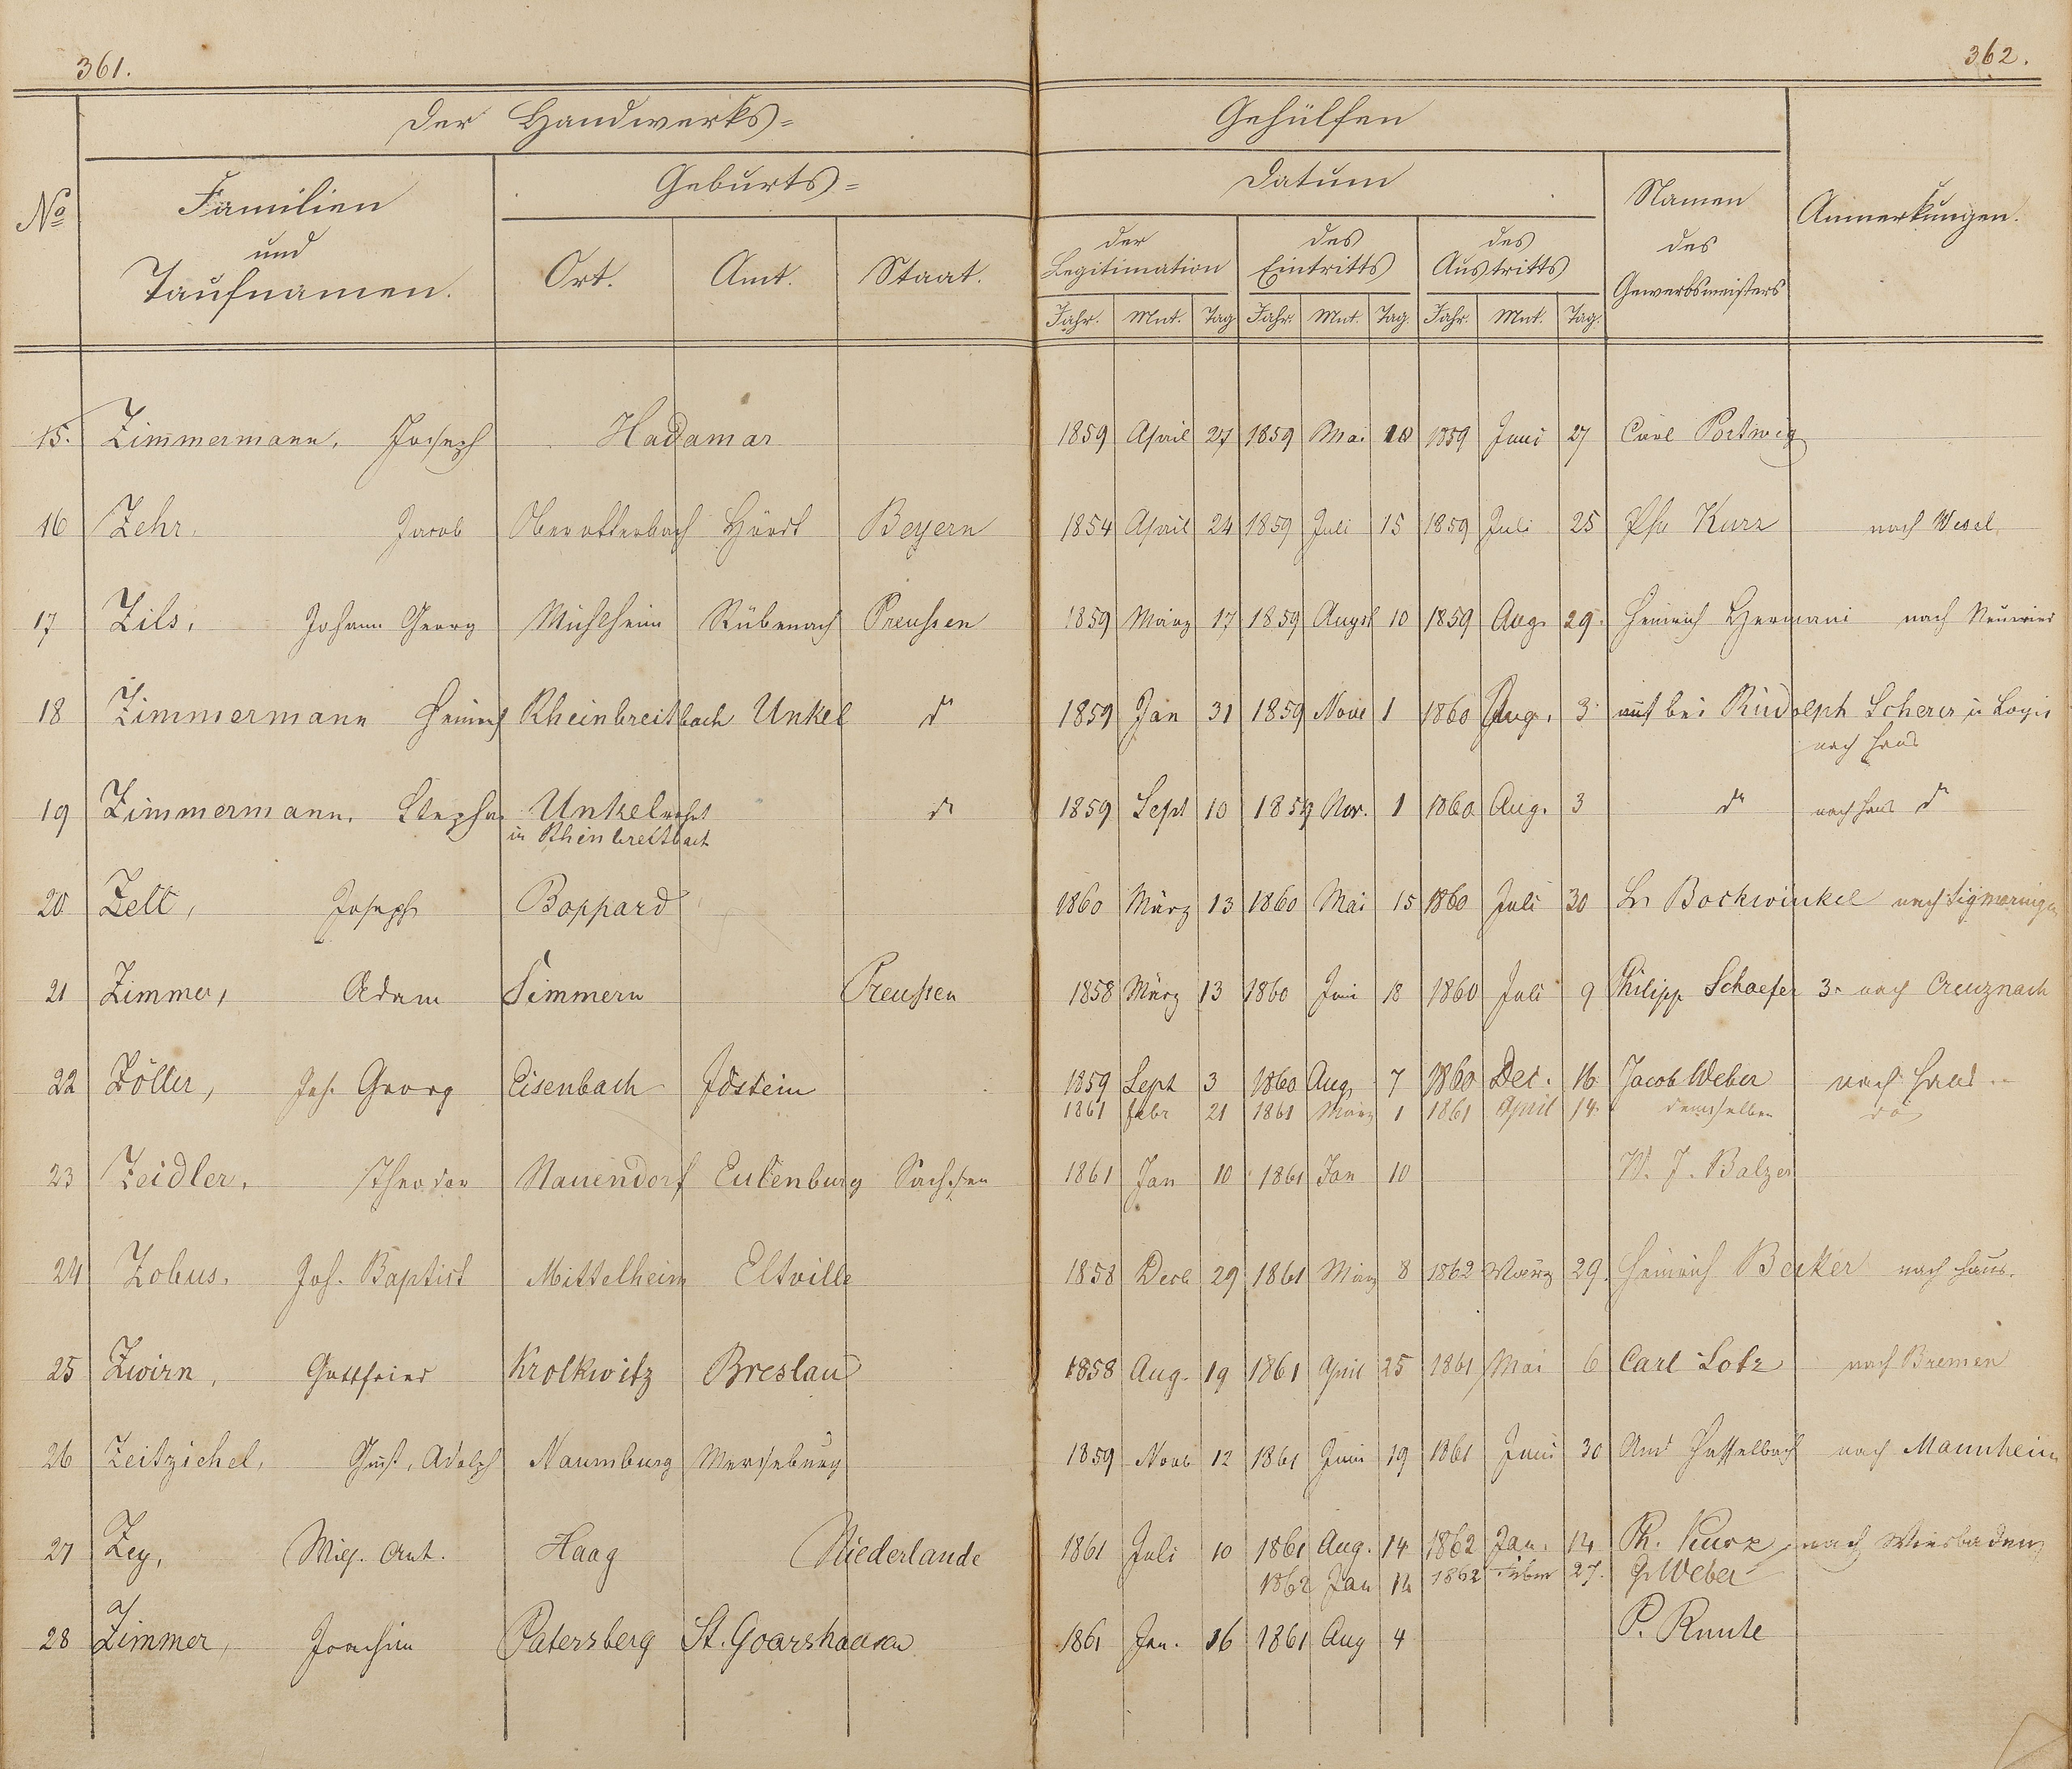 361.
362.
Der Handwerks=
Gehülfen
No
Familien
und
Taufnamen.
Geburts=
Ort. Amt. Staat.
Datum
der Legitimation
des Eintritts
des Austritts
Jahr. Mnt. Tag Jahr. Mnt. Tag. Jahr. Mnt. Tag.
Namen
des
Gewerbsmeisters
Anmerkungen.
15. Zimmermann, Joseph Hadamar 1859 April 27 1859 Mai 10 1859 Juni 27 Carl Portwig
16 Zehr, Jacob Oberotterbach Beyern 1854 April 24 1859 Juli 15 1859 Juli 25 Kurz nach Wesel
17 Zils, Johann Georg Mühlheim Rübenach Preußen 1859 März 17 1859 Augst 10 1859 Aug. 29. Heinrich Hermani nach Neuwied
18 Zimmermann Heinrich Rheinbreitbach Unkel do 1859 Jan 31 1859 Nove 1 1860 Aug. 3 bei Rudolph Scherer u Logis
nach Haus
19 Zimmermann, Stephan Unkel wohnt do 1859 Sept 10 1859 Nov. 1 1860 Aug. 3 do nach Haus do
in Rheinbreitbach
20 Zell, Joseph Boppard 1860 März 13 1860 Mai 15 1860 Juli 30 Bockwinkel nach Sigmaringen
21 Zimmer, Adam Simmern Preußen 1858 März 13 1860 Juni 18 1860 Juli 9 Philipp Schaefer 3. nach Creuznach
22 Zöller, Joh. Georg Eisenbach Idstein 1859 Sept 3 1860 Aug 7 1860 Dec. 16 Jacob Weber nach Haus
1861 Febr 21 1861 März 1 1861 April 14. demselben do
23 Zeidler, Theodor Nauendorf Eulenburg Sachsen 1861 Jan 10 1861 Jan 10 W. J. Balzer
24 Zobus, Joh. Baptist Mittelheim Eltville 1858 Decb 29 1861 März 8 1862 März 29. Heinrich Becker nach Haus.
25 Zwirn, Gottfried Krolkwitz Breslau 1858 Aug. 19 1861 April 25 1861 Mai 6 Carl Lotz nach Bremen
26 Zeitzichel, Gust. Adolph Naumburg Merseburg 1859 Novb 12 1861 Juni 19 1861 Juni 30 And Hasselbach nach Mannheim
27 Zey, Wilh. Ant. Haag Niederlande 1861 Juli 10 1861 Aug. 14 1862 Jan. 14 Ph. Kurz nach Wiesbaden
1862 Jan 14 1862 27. J. Weber
28 Zimmer, Joachim Patersberg St. Goarshausen 1861 Jan. 16 1861 Aug 4 P. Runte